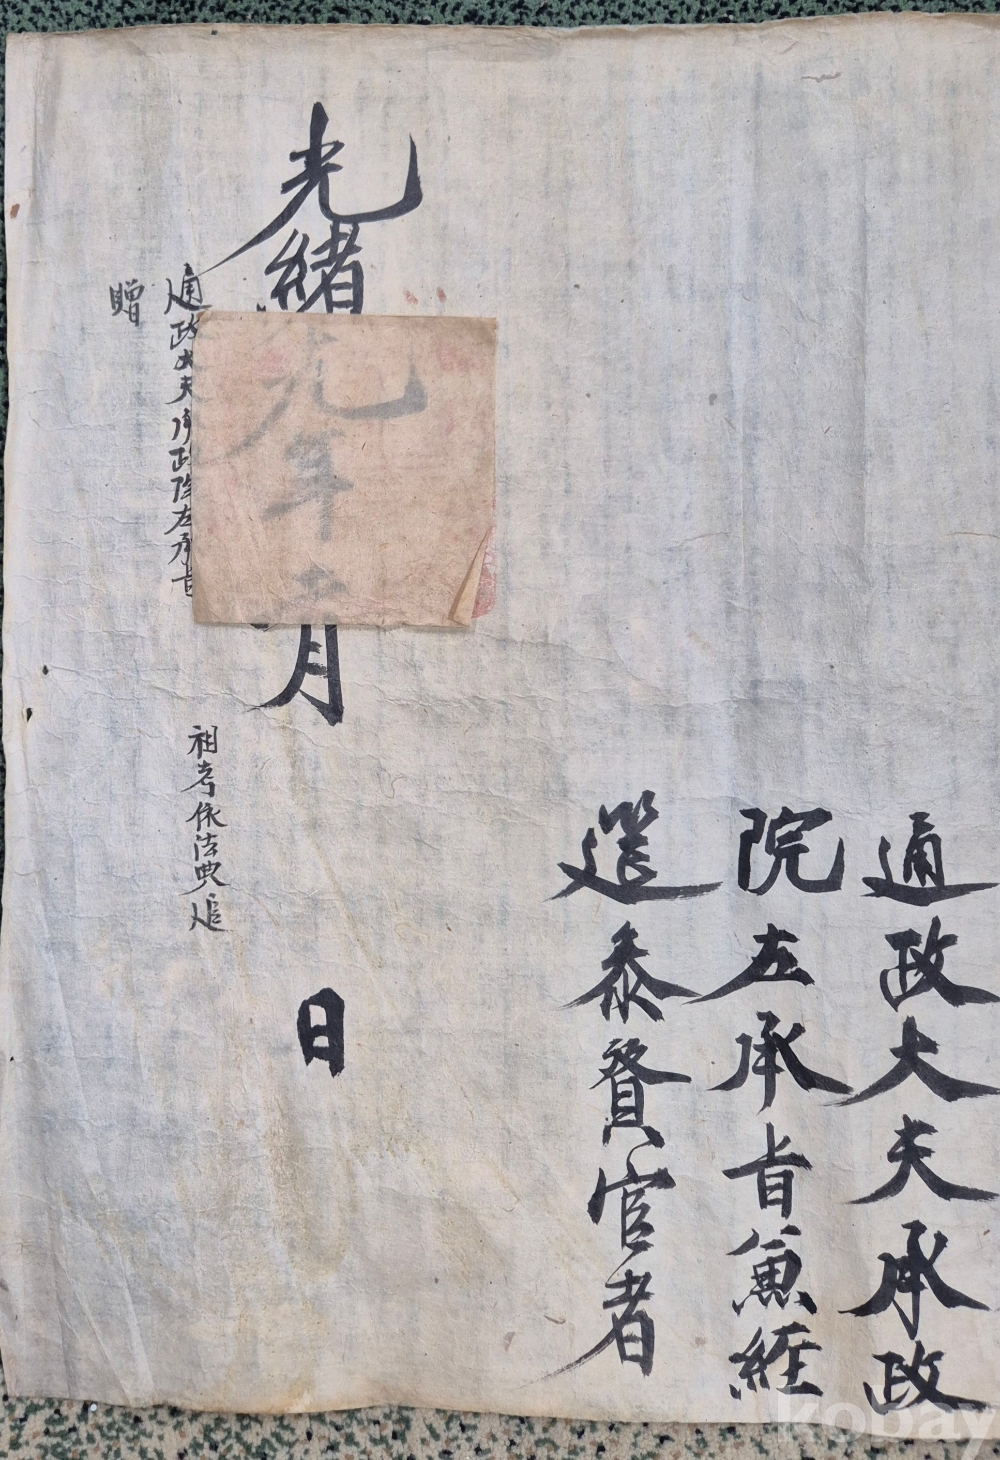 通政大夫承政
院左承旨兼經
筵參贊官者
光緒 年 月 日
通政大夫承政院左承旨 祖考依法典追
贈
kobay